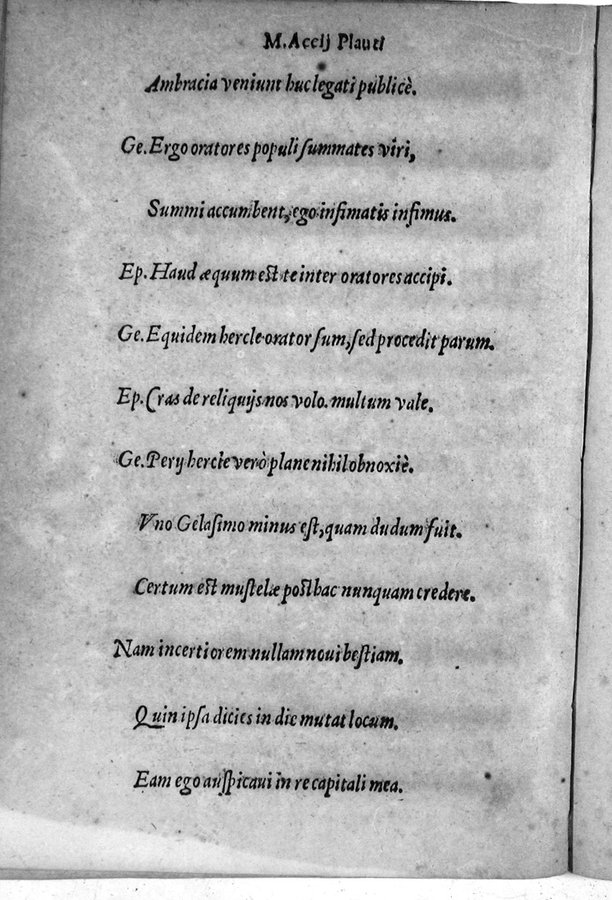 M. Accij Plauti
Ambracia veniunt huc legati publicè.
Ge. Ergo oratores populi summates viri,
Summi accumbent, ego infimatis infimus.
Ep. Haud æquum est te inter oratores accipi.
Ge. Equidem hercle orator sum, sed procedit parum.
Ep. Cras de reliquijs nos volo. multum vale.
Ge. Perij hercle verò plane nihil obnoxiè.
Vno Gelasimo minus est, quam dudum fuit.
Certum est mustelæ posthac nunquam credere.
Nam incertiorem nullam noui bestiam.
Quin ipsa dicies in die mutat locum.
Eam ego auspicaui in re capitali mea.